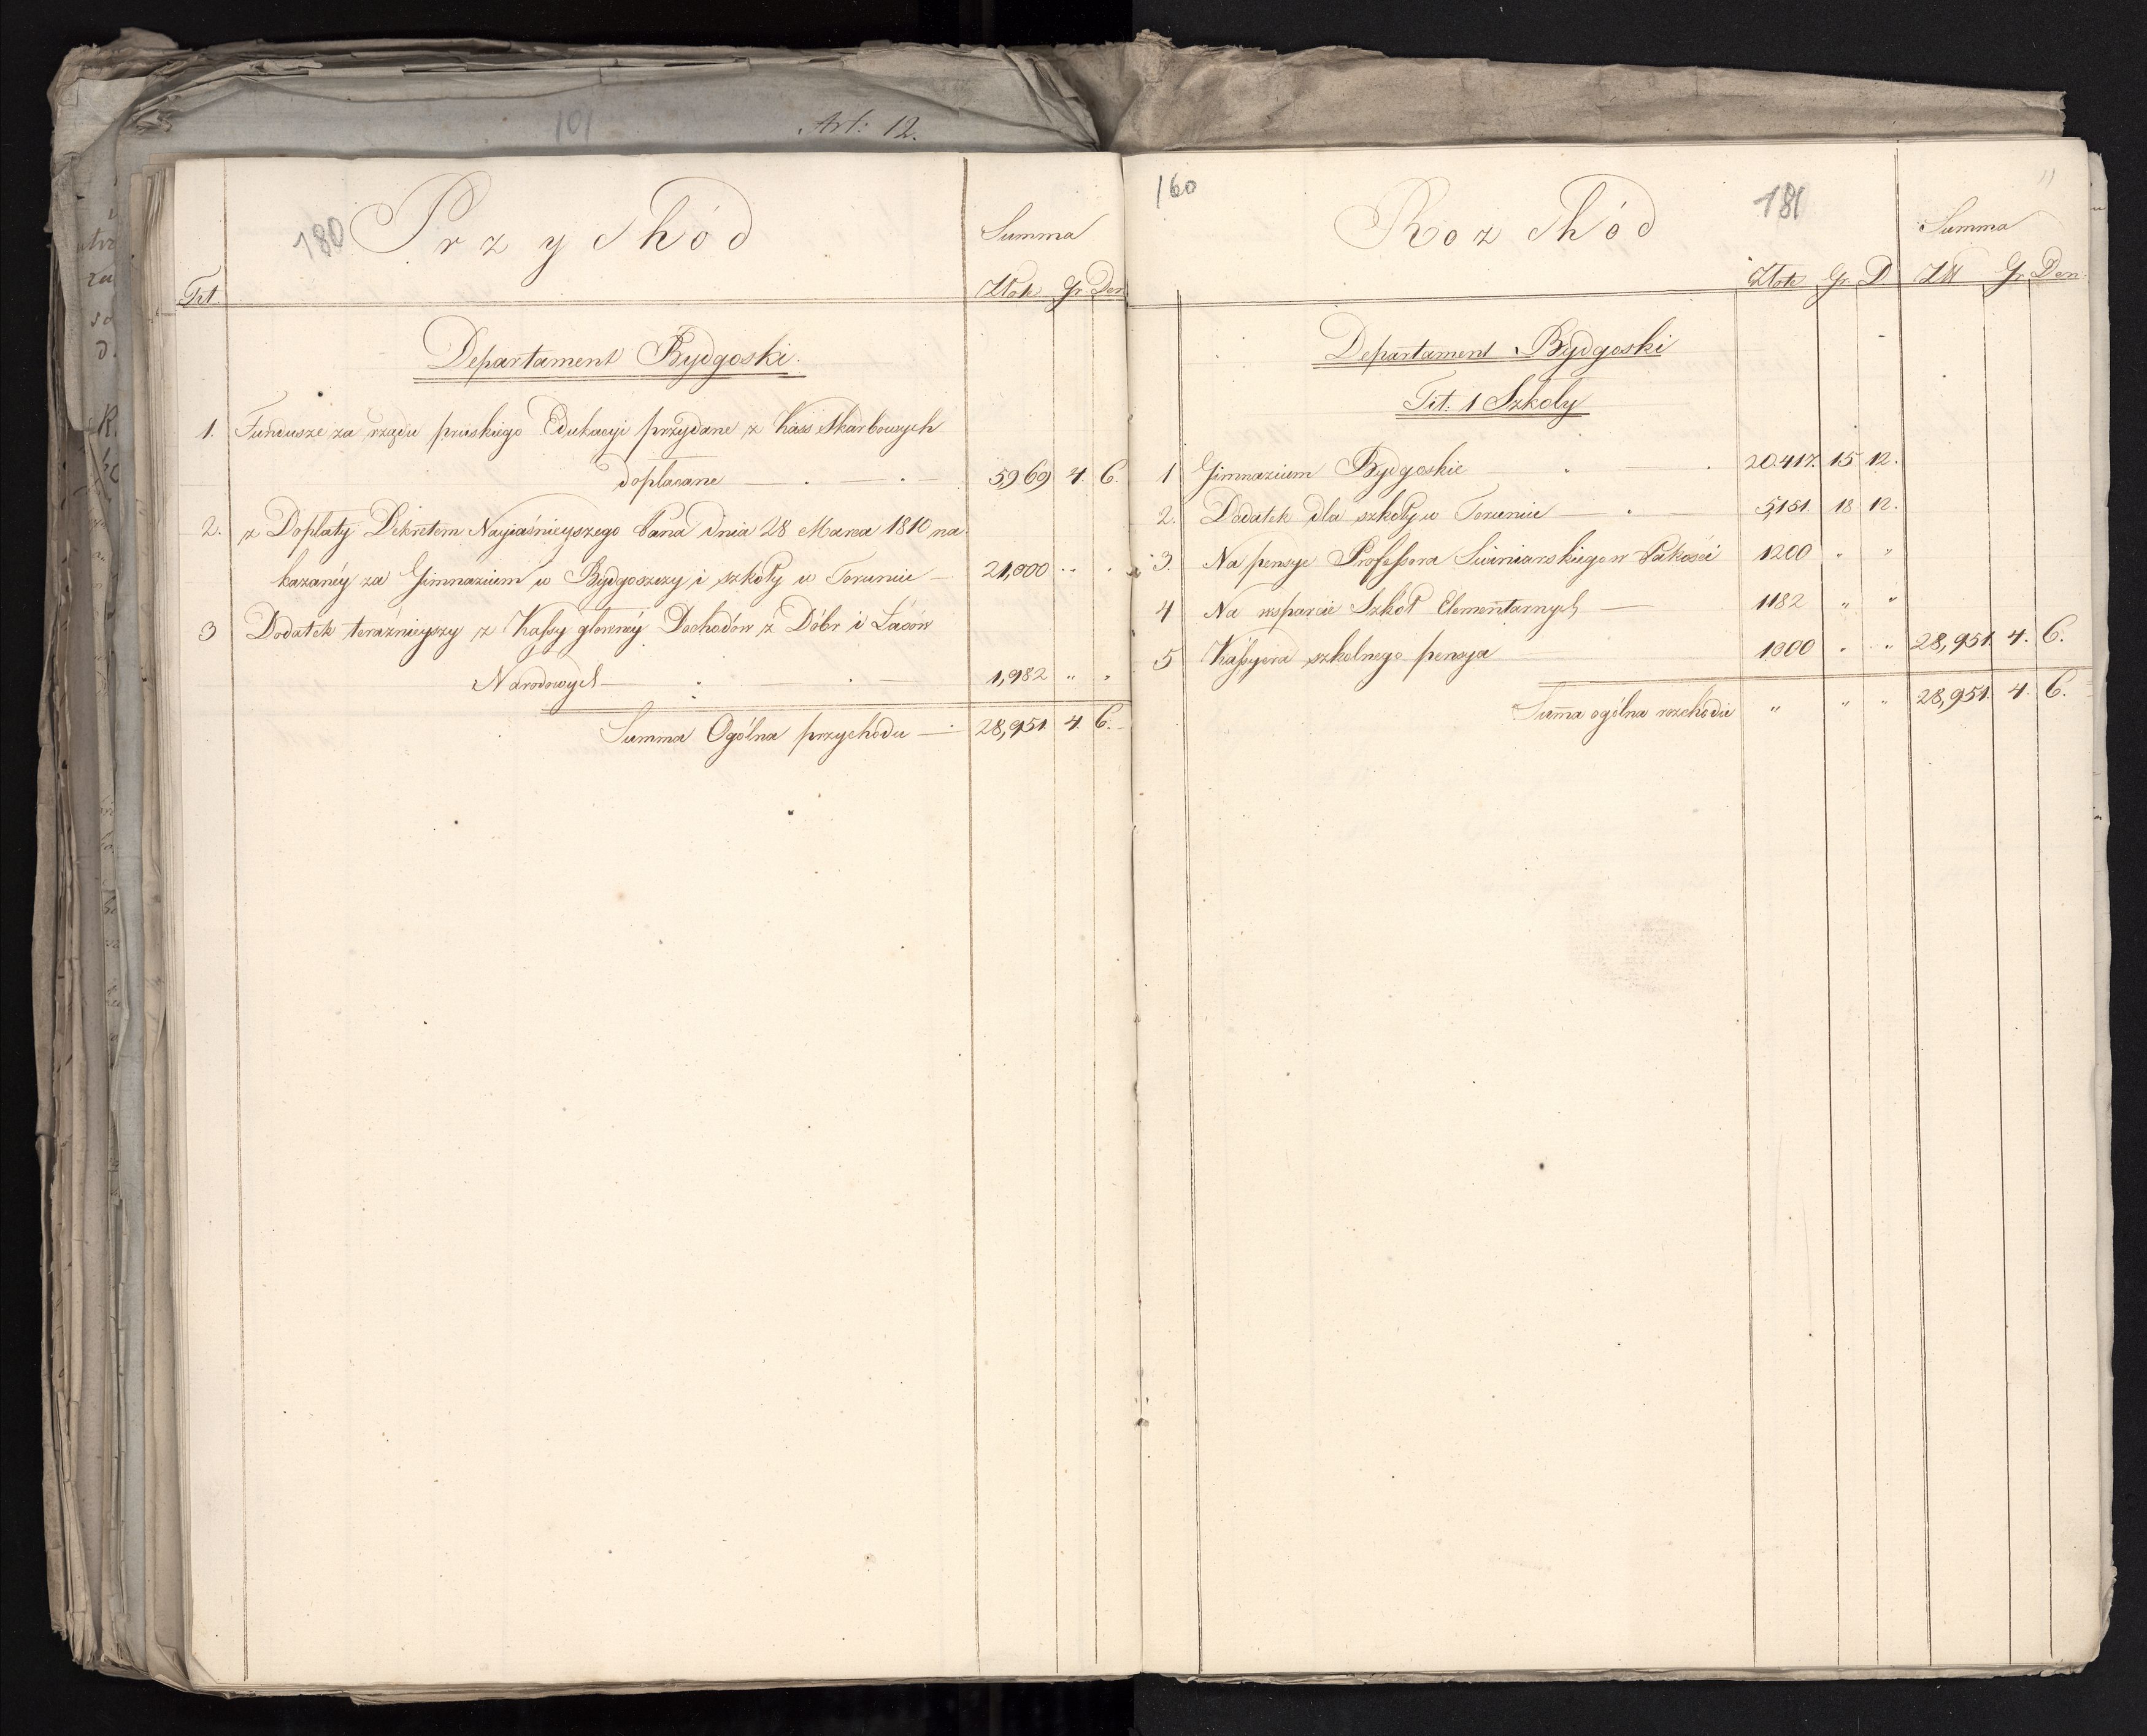 101
Art: 12.
180
Przychód
Summa
Tit.
Złote Gr Den
Departament Bydgoski.
1. Fundusze za rządu pruskiego Edukacyi przydane z Kass skarbowych
dopłacane — . — . — 5969 4. 6.
2. z Dopłaty Dekretem Nayiaśnieyszego Pana dnia 28 Marca 1810 na
kazanéy za Gimnazium w Bydgoszczy i szkoły w Toruniu — 21,000 " "
3 Dodatek teraźnieyszy z Kassy głównéy Dochodów z Dóbr i Lasów
Narodowych — " — . — 1,982 " "
Summa Ogólna przychodu — 28,951 4. 6.
160
181
11
Rozchód
Summa
Złote Gr. D. Zł Gr Den.
Departament Bydgoski
Tit: 1 Szkoły
1 Gimnazium Bydgoskie — . — . 20.417. 15 12.
2. Dodatek dla szkoły w Toruniu — . — 5,151. 18 12.
3. Na pensye Professora Swiniarskiego w Pakości 1200 " "
4 Na wsparcie Szkół Elementarnych — 1182 " "
5 Kassyera szkolnego pensya — 1000 " " 28,951. 4. 6.
Suma ogólna rozchodu " " " 28,951. 4. 6.